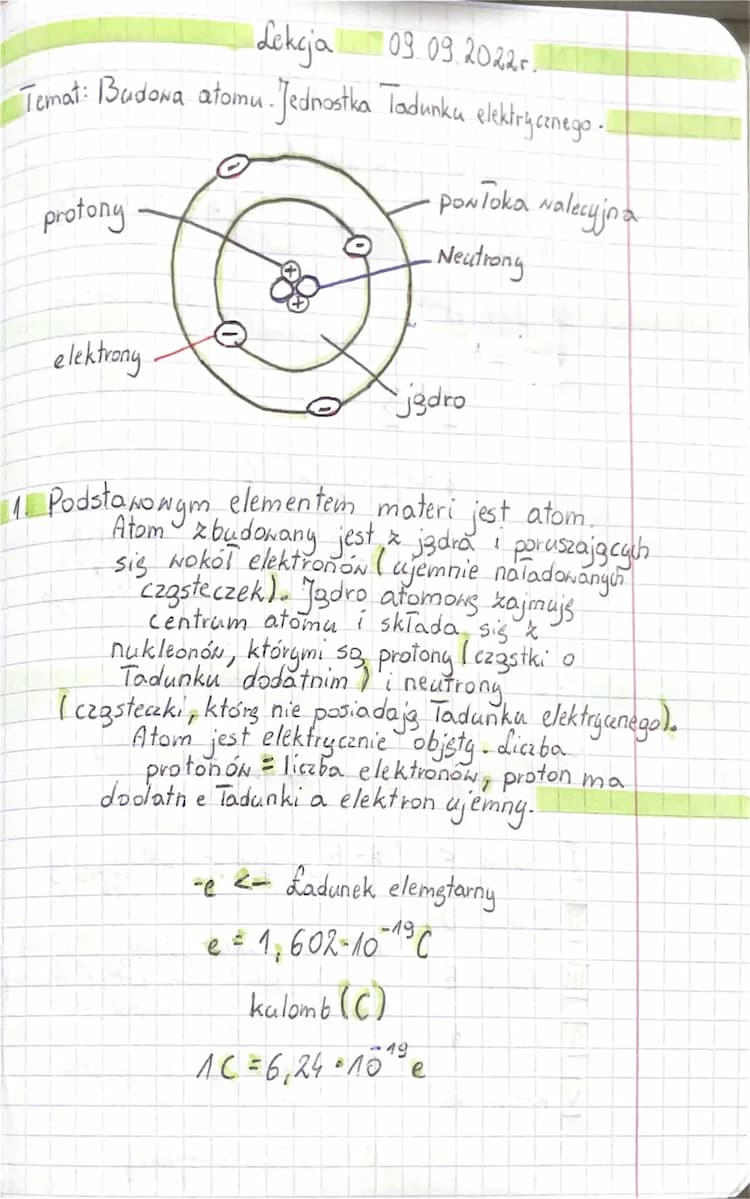 Lekcja 09.09.2022r.
Temat: Budowa atomu. Jednostka ładunku elektrycznego.
protony
powłoka walecyjna
Neutrony
elektrony
jądro
1. Podstawowym elementem materi jest atom.
Atom zbudowany jest z jądra i poruszających
się wokół elektronów (ujemnie naładowanych
cząsteczek). Jądro atomowę zajmuję
centrum atomu i składa się z
nukleonów, którymi są protony (cząstki o
ładunku dodatnim) i neutrony
(cząsteczki, którę nie posiadają ładunku elektrycznego).
Atom jest elektrycznie objęty. Liczba
protonów = liczba elektronów, proton ma
dodatn e ładunki a elektron ujemny.
-e <- Ładunek elemętarny
e = 1,602·10⁻¹⁹C
kulomb (C)
1C = 6,24·10⁻¹⁹e